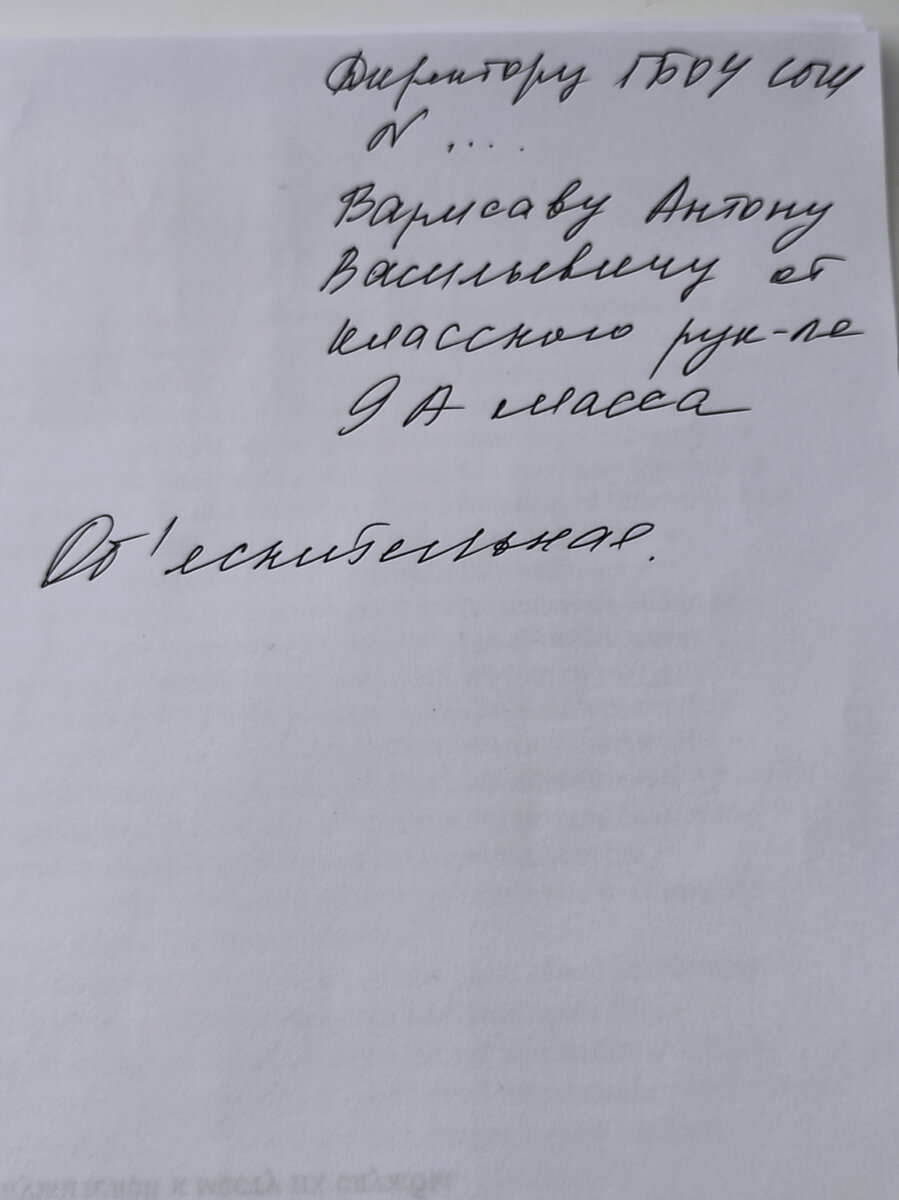 Директору ГБОУ сош
N ....
Варисаву Антону
Васильевичу от
классного рук-ля
9 А класса
Об'яснительная.